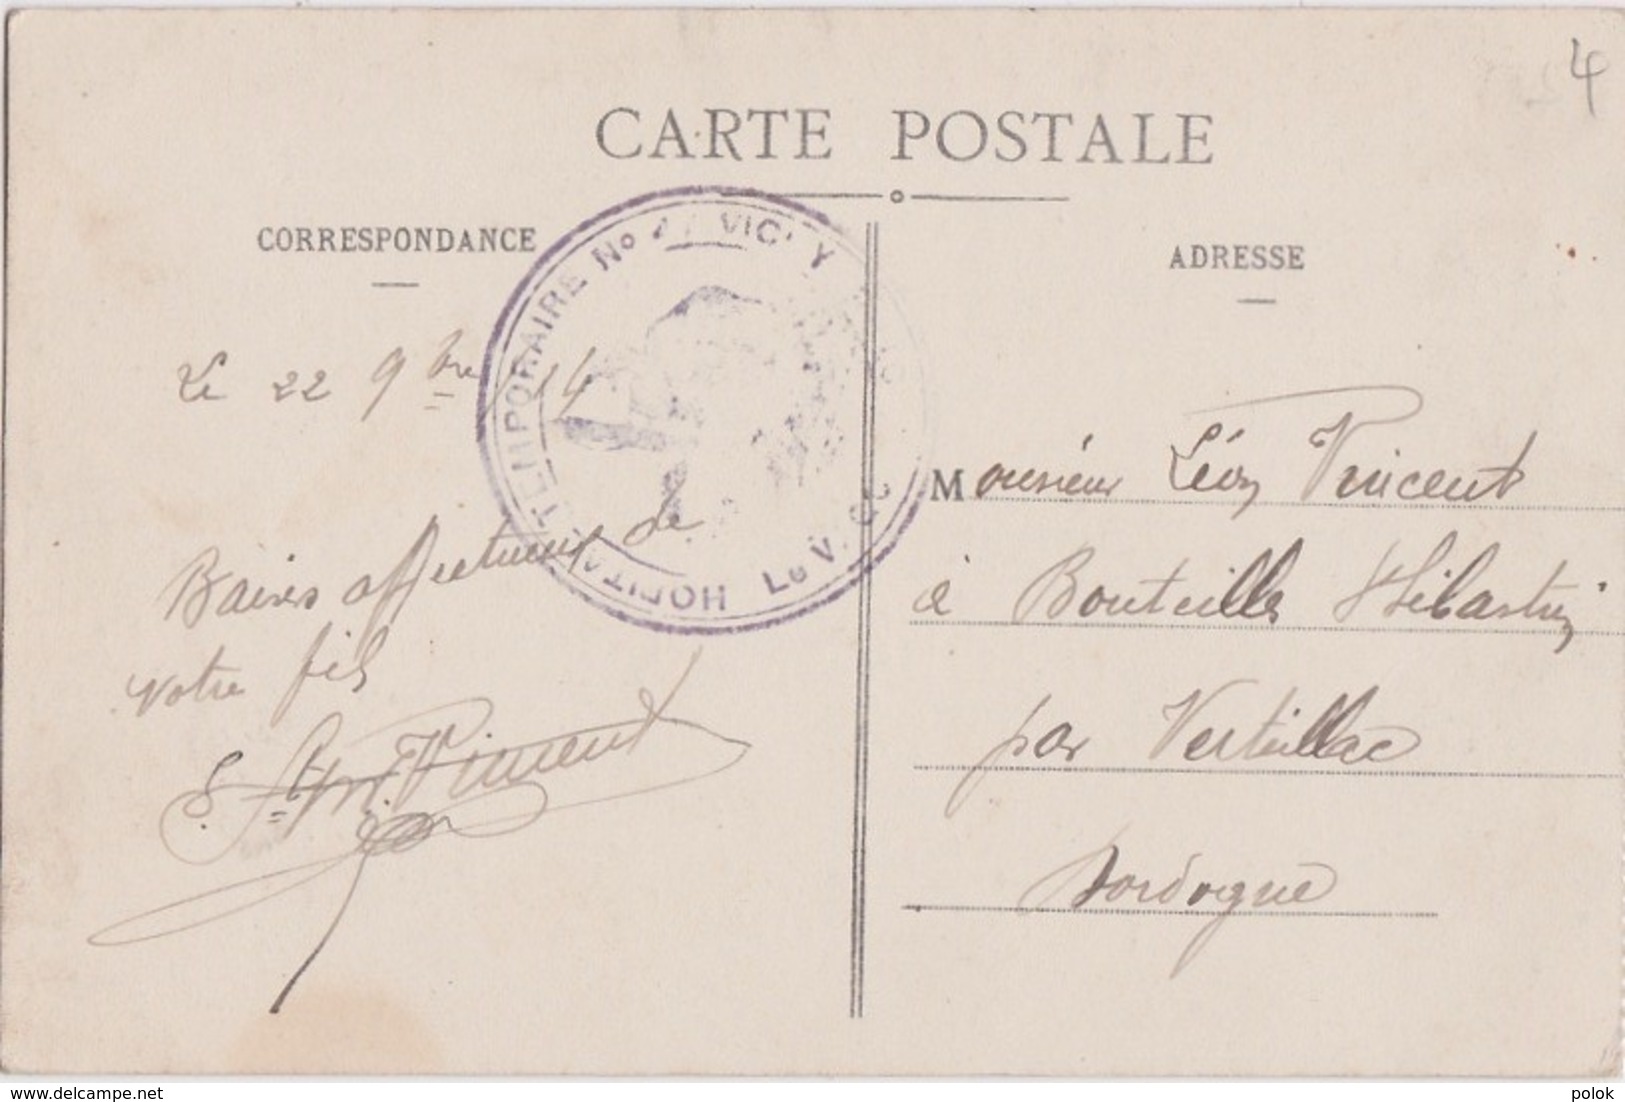 4
CARTE POSTALE
CORRESPONDANCE
ADRESSE
HOPITAL TEMPORAIRE No VICHY
Le V. G.
Le 22 9bre 14
Baisers affectueux de
votre fils
Vincent
Monsieur Léon Vincent
à Bouteilles St Sébastien
par Verteillac
Dordogne
© delcampe.net
polok